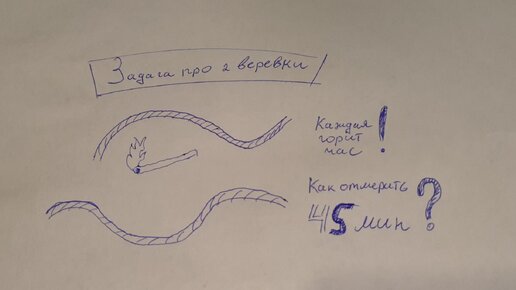 Задача про 2 веревки
Каждая
горит
час !
Как отмерать
45 мин ?